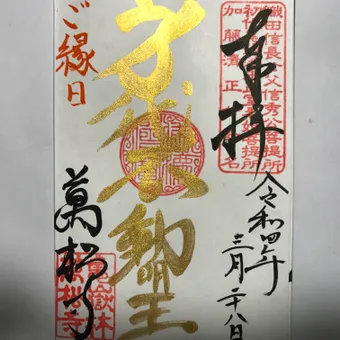 織田信長公父信秀公菩提所
加藤清正
奉拝
令和四年
三月二十八日
身代不動明王
ご縁日
萬松寺
亀嶽林
萬松寺